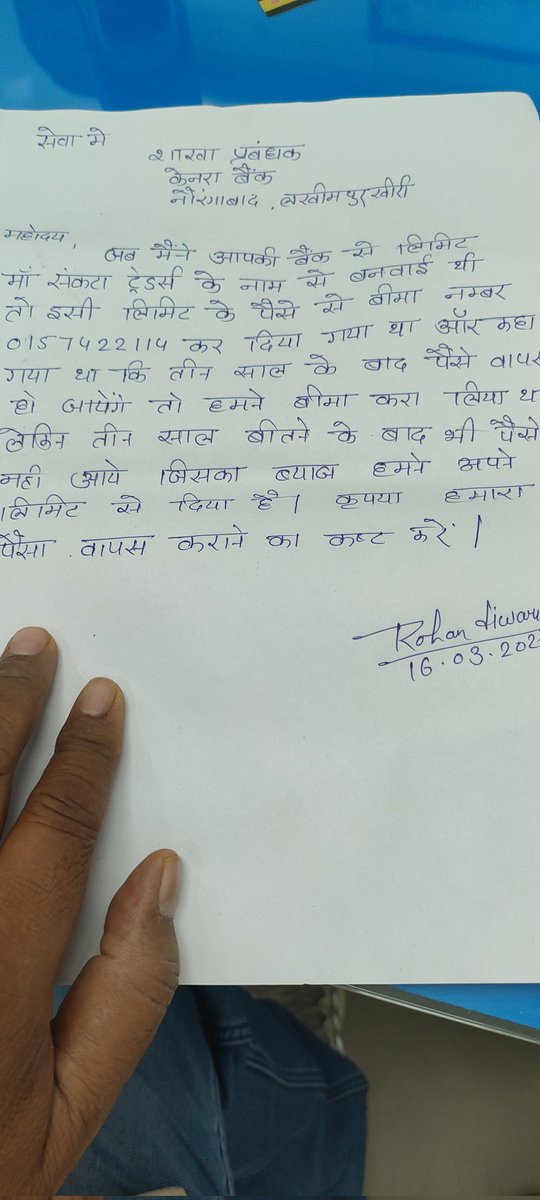 सेवा मे
शाखा प्रबंधक
केनरा बैंक
नौरंगाबाद, लखीमपुर खीरी
महोदय,
जब मैंने आपकी बैंक से लिमिट
माँ संकटा ट्रेडर्स के नाम से बनवाई थी
तो इसी लिमिट के पैसे से बीमा नम्बर
0157422114 कर दिया गया था और कहा
गया था कि तीन साल के बाद पैसे वापस
हो जायेंगे तो हमने बीमा करा लिया था
लेकिन तीन साल बीतने के बाद भी पैसे
नही आये जिसका ब्याज हमने अपने
लिमिट से दिया है। कृपया हमारा
पैसा वापस कराने का कष्ट करें।
Rohan tiwari
16.03.202